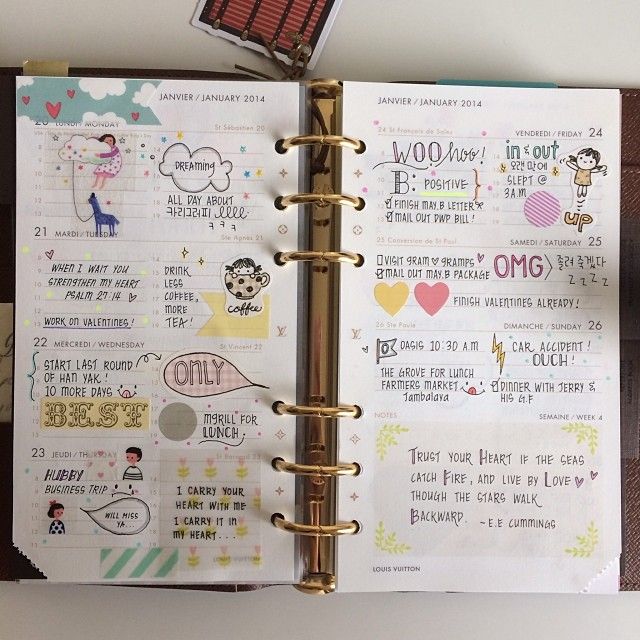 JANVIER / JANUARY 2014
20 LUNDI / MONDAY
St Sébastien 20
DREAMING
ALL DAY ABOUT
카리그라피 llll
ㅋㅋㅋ
21 MARDI / TUESDAY
Ste Agnès 21
WHEN I WAIT YOU
STRENGTHEN MY HEART
PSALM 27:14
WORK ON VALENTINES!
DRINK
LESS
COFFEE,
MORE
TEA!
coffee
22 MERCREDI / WEDNESDAY
St Vincent 22
START LAST ROUND
OF HAN YAK!
10 MORE DAYS
BEST
ONLY
MGRILL FOR
LUNCH
23 JEUDI / THURSDAY
HUBBY
BUSINESS TRIP
WILL MISS
YA...
I CARRY YOUR
HEART WITH ME
I CARRY IT IN
MY HEART...
LOUIS VUITTON
JANVIER / JANUARY 2014
24 St François de Sales
VENDREDI / FRIDAY 24
WOO hoo!
B: POSITIVE
FINISH MAY.B LETTER
MAIL OUT DWP BILL!
in & out
오랜만에
SLEPT @
3AM
up
25 Conversion de St Paul
SAMEDI / SATURDAY 25
VISIT GRAM GRAMPS
MAIL OUT MAY.B PACKAGE
OMG
졸려죽겠다
Z Z Z Z
FINISH VALENTINES ALREADY!
26 Ste Paule
DIMANCHE / SUNDAY 26
OASIS 10:30 AM
THE GROVE FOR LUNCH
FARMERS MARKET
Jambalaya
CAR ACCIDENT!
OUCH!
DINNER WITH JERRY &
HIS G.F
NOTES
SEMAINE / WEEK 4
TRUST YOUR HEART IF THE SEAS
CATCH FIRE, AND LIVE BY LOVE
THOUGH THE STARS WALK
BACKWARD. - E.E CUMMINGS
LOUIS VUITTON